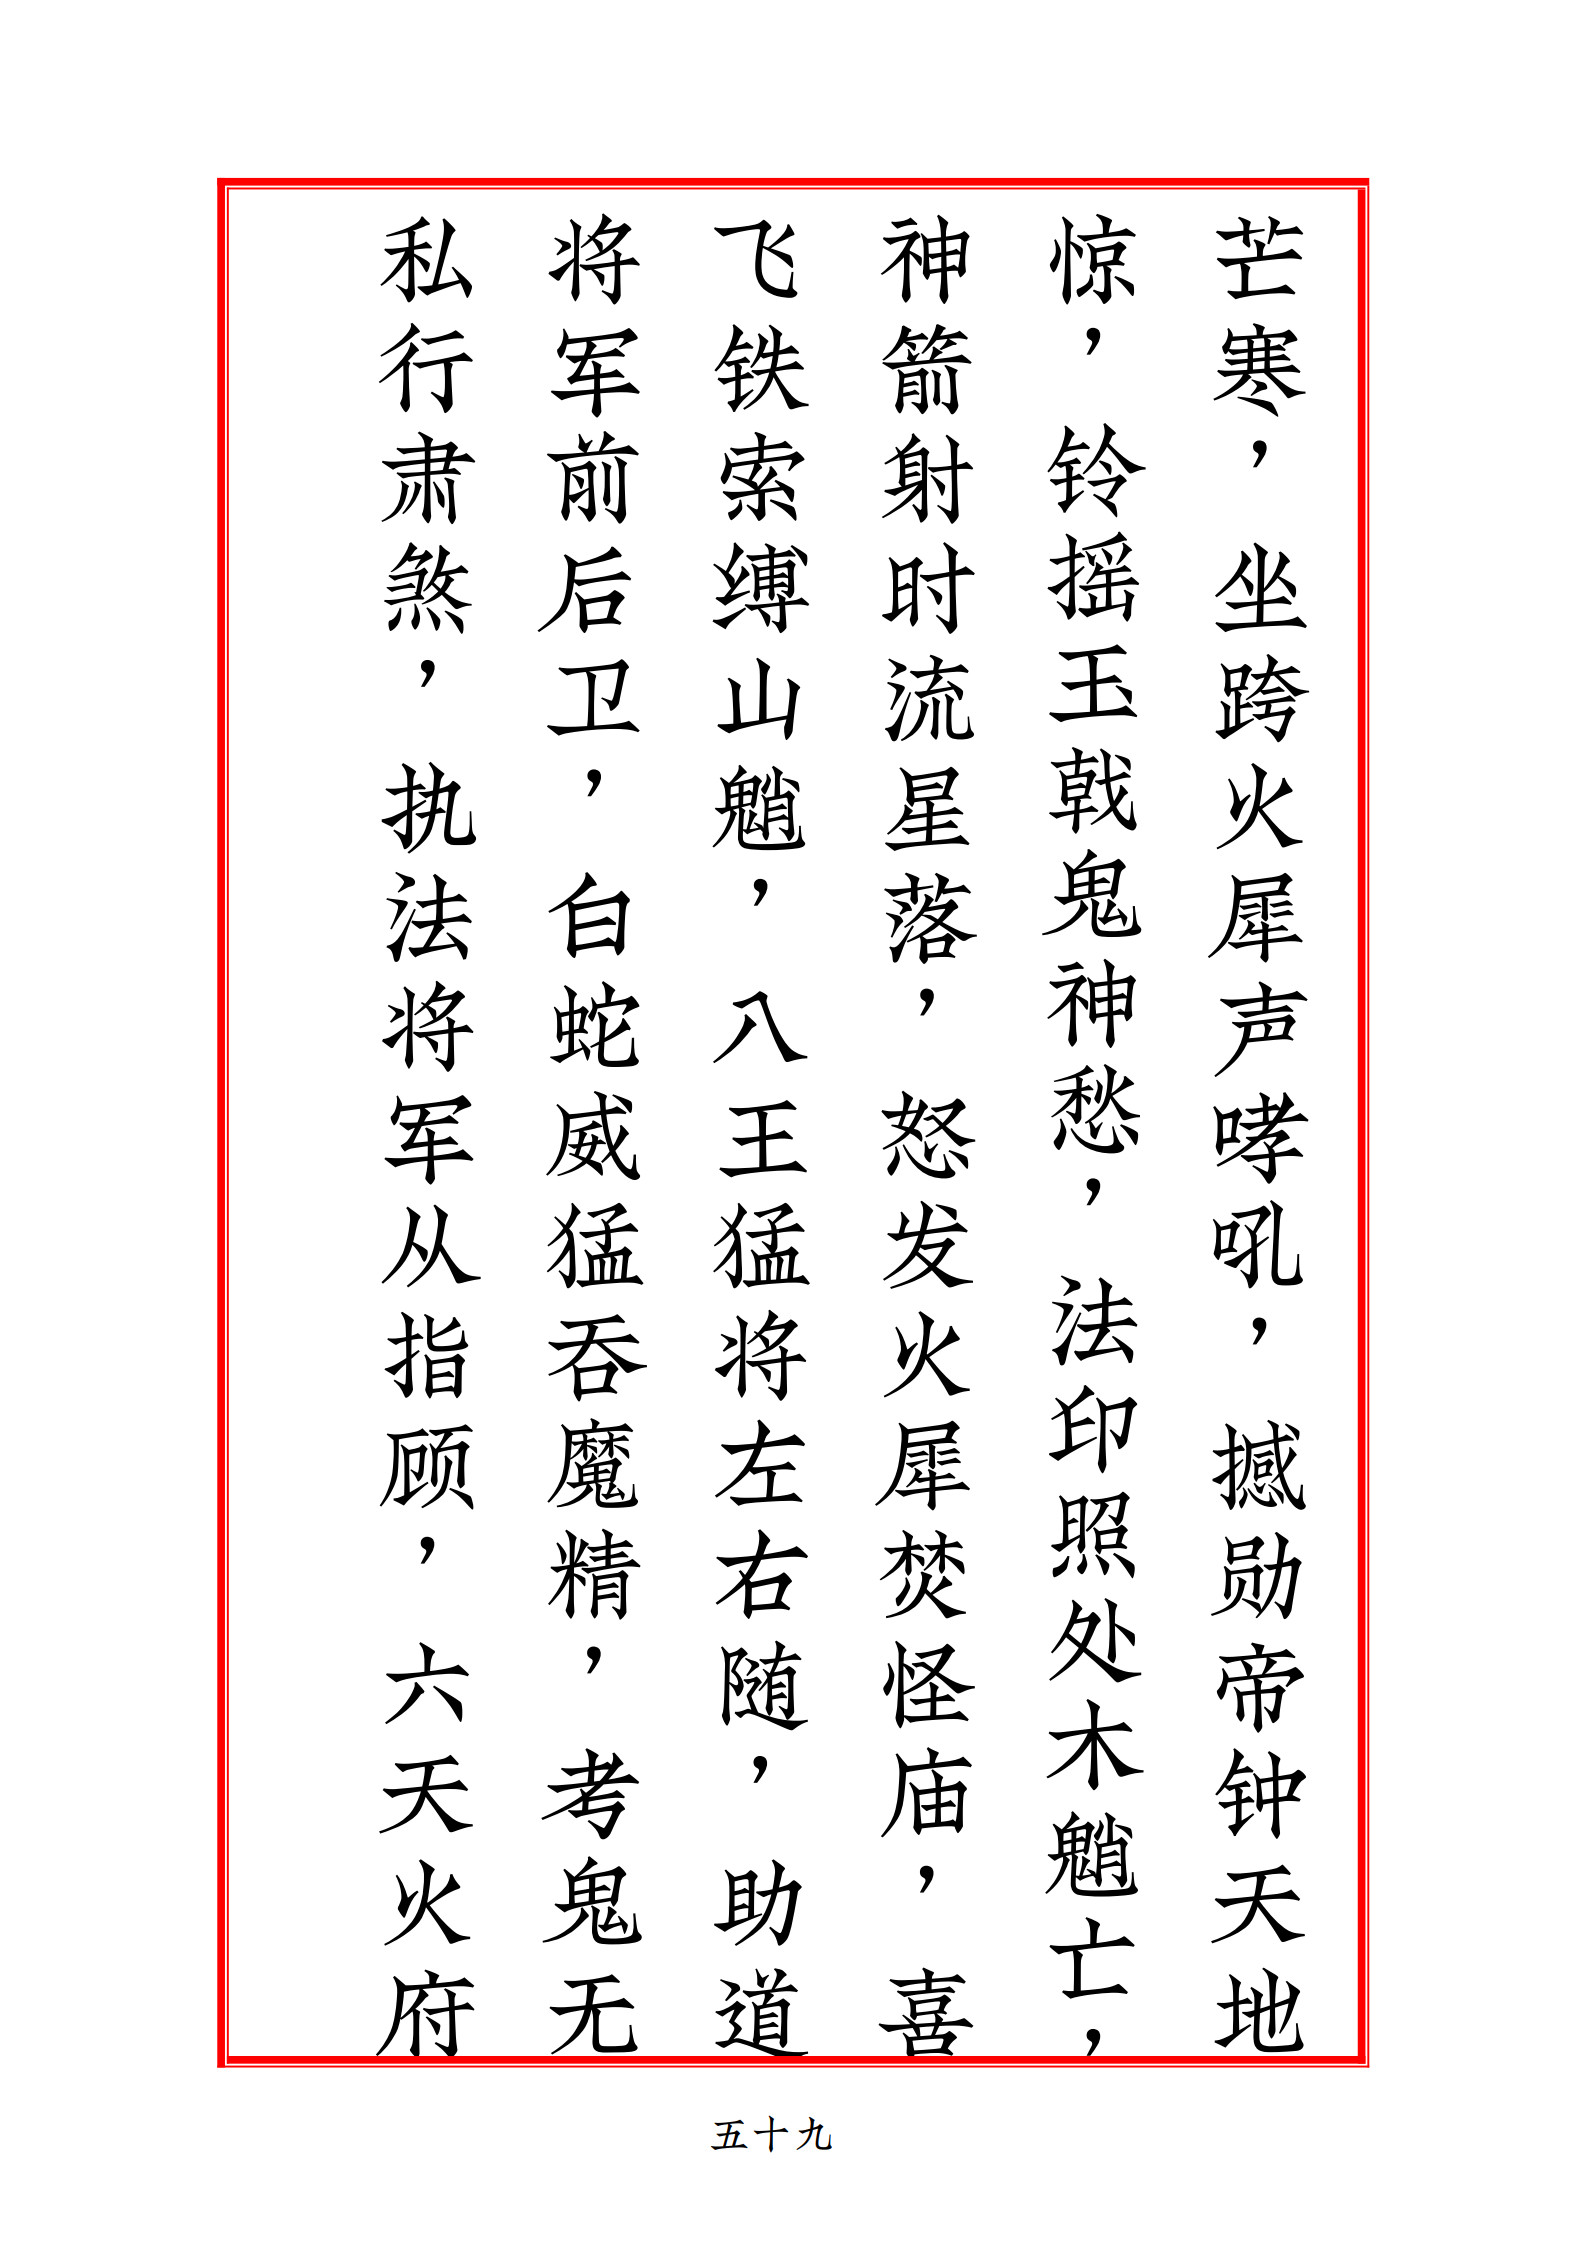 芒寒，坐跨火犀声哮吼，撼勋帝钟天地
惊，铃摇玉戟鬼神愁，法印照处木魈亡，
神箭射时流星落，怒发火犀焚怪庙，喜
飞铁索缚山魈，八王猛将左右随，助道
将军前后卫，白蛇威猛吞魔精，考鬼无
私行肃煞，执法将军从指顾，六天火府
五十九